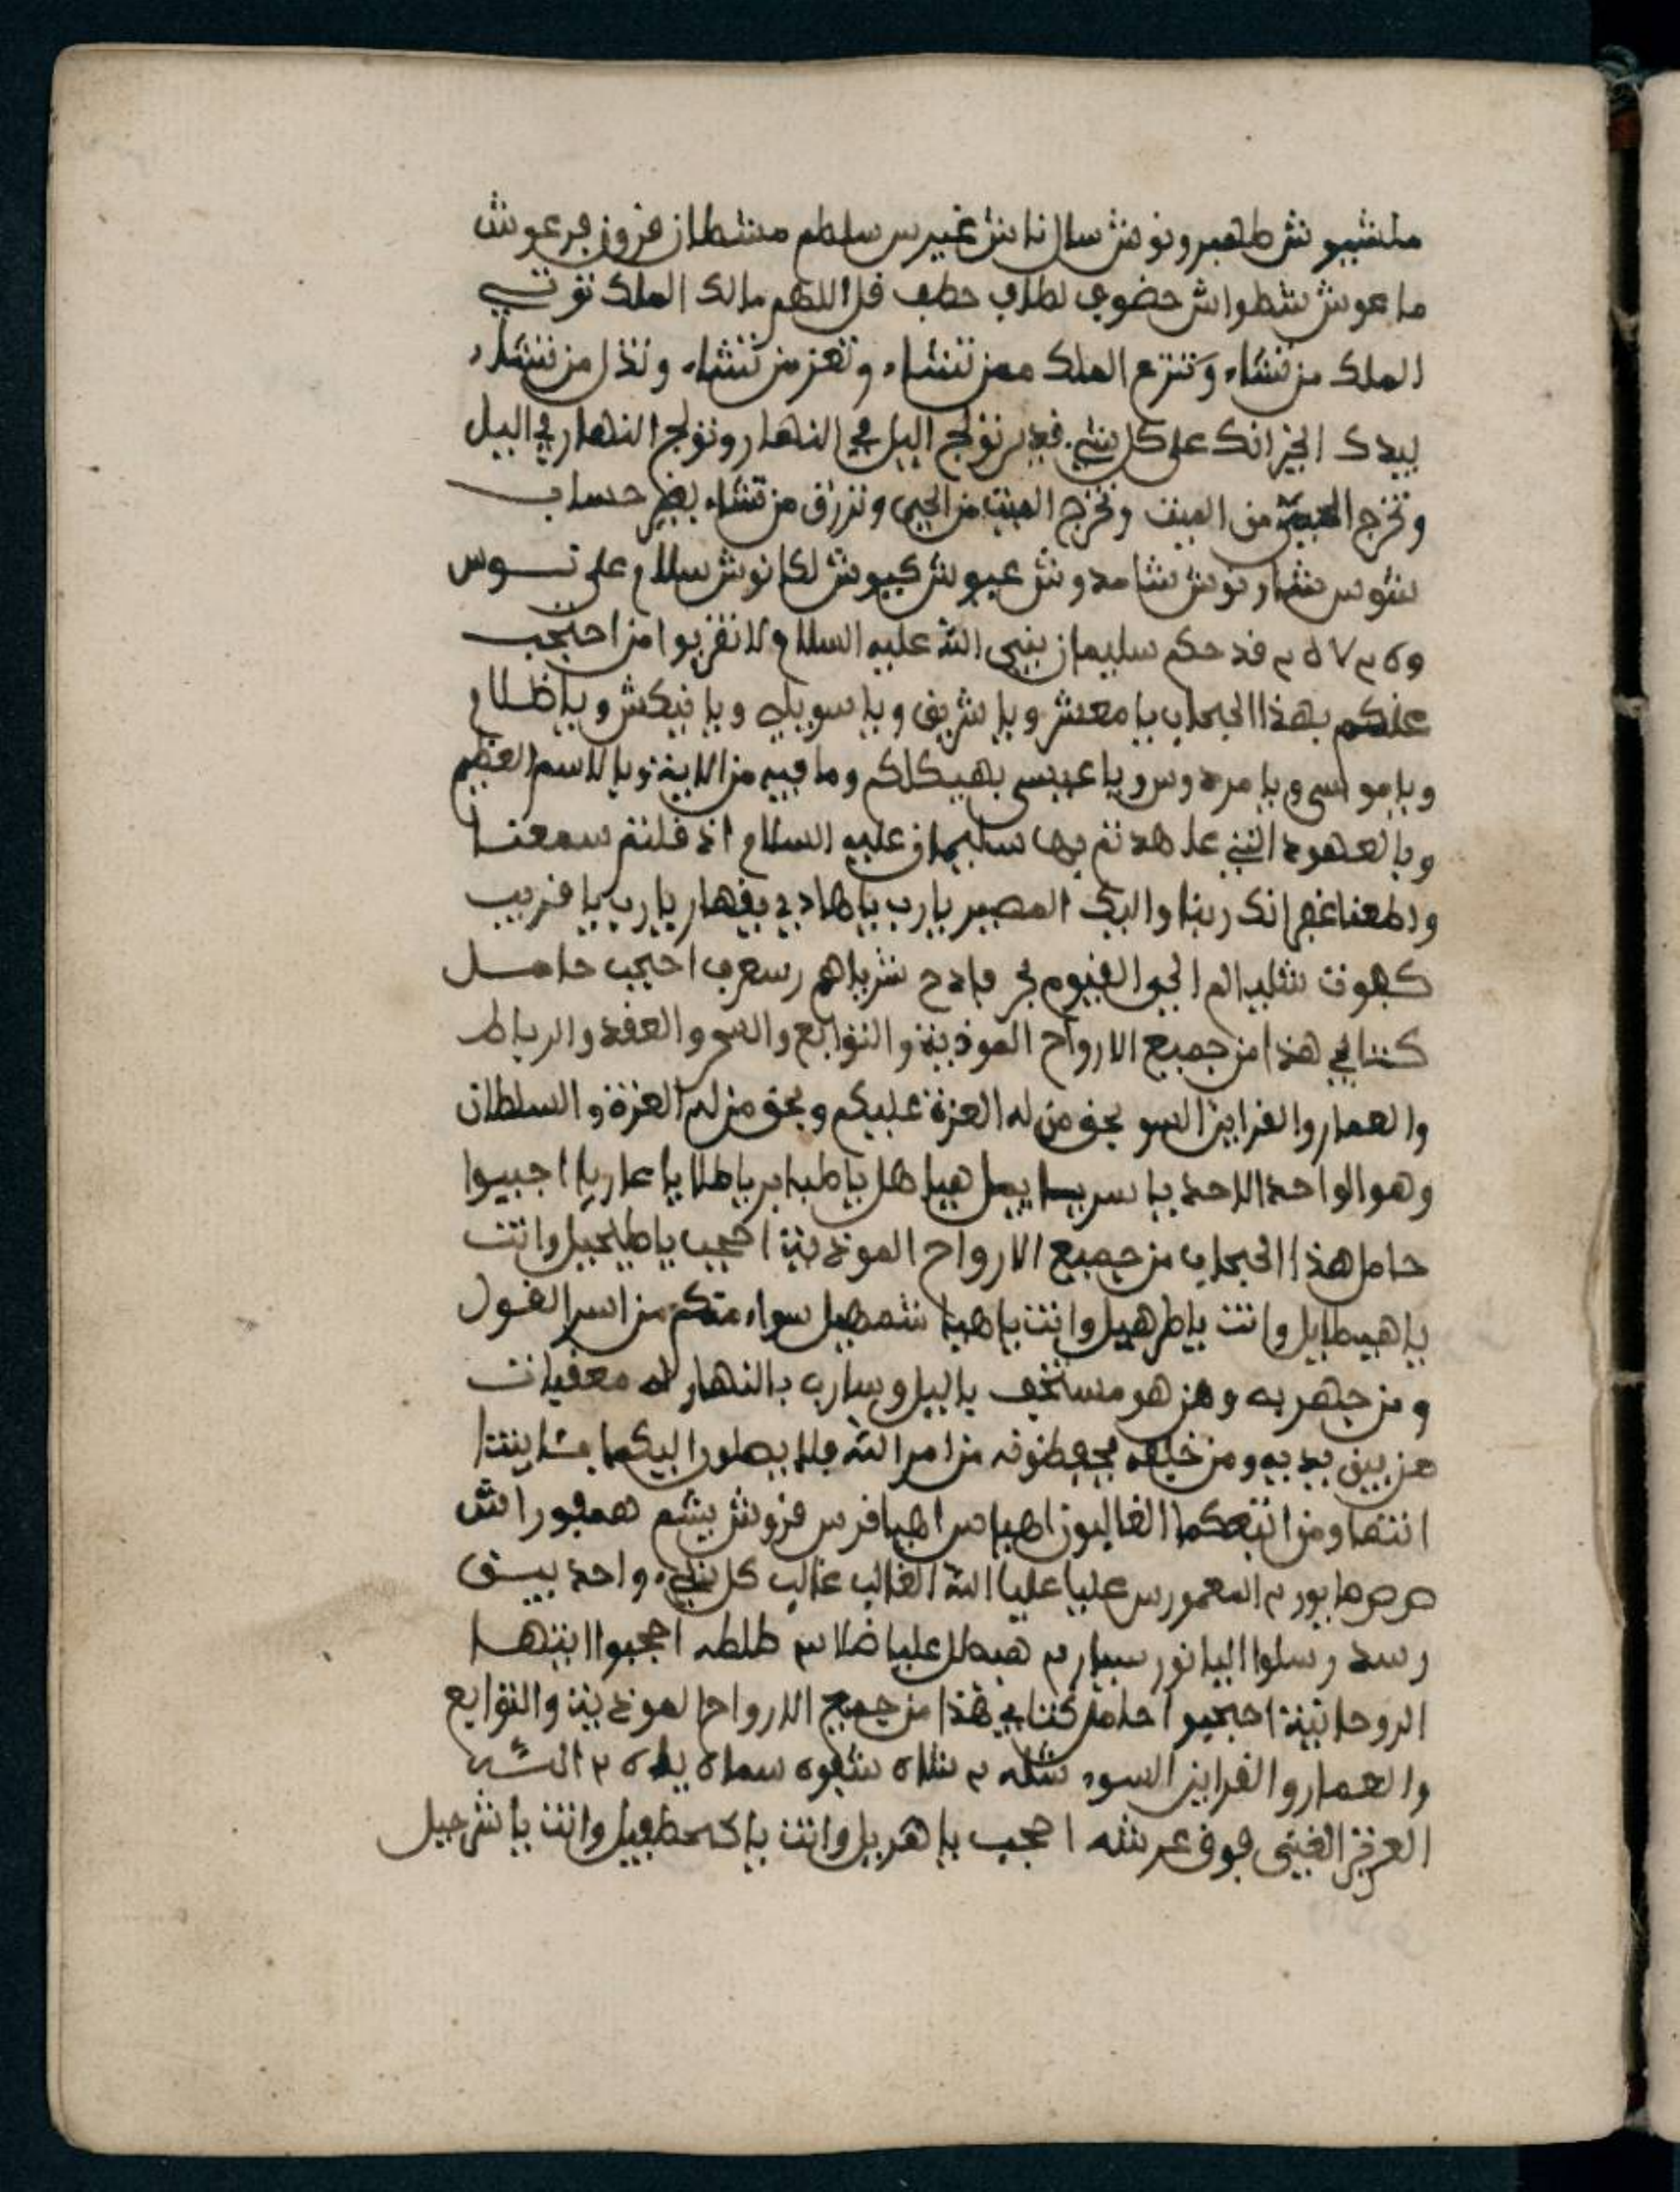 ملشيوش طهيرونوش سال ناش غيرس سلطم مشطان فزون فرعوش
ماعوش شطواش حضوى لطاف حطف قل اللهم مالك الملك توتي
الملك من تشاء وتنزع الملك ممن تشاء وتعز من تشاء وتذل من تشاء
بيدك الخير انك على كل شيء قدير تولج اليل في النهار وتولج النهار في اليل
وتخرج الحي من الميت وتخرج الميت من الحي وترزق من تشاء بغير حساب
شوس شارنوش شامدوش عيوش كيوش لكانوش سلام على نوس
قد حكم سليمان بنبي الله عليه السلام لا تقربوا من احتجب
عنكم بهذا الحجاب يا معشر ويا شريف ويا سويك ويا نيكش ويا ظلام
ويا موسى ويا مردوس ويا عيسى بهيكلكم وما فيه من الاية وبالاسم العظيم
وبالعهود التي عاهدتم بها سليمان عليه السلام اذ قلتم سمعنا
واطعنا غفرانك ربنا واليك المصير يارب يا هادي يقهار يارب يا قريب
كهوت شليا الم الحي القيوم فادح شرياهم رسعرب احجب حامل
كتابي هذا من جميع الارواح الموذية والتوابع والسحر والعقد والرباط
والعمار والقراين السو بحق من له العزة عليكم وبحق من له العزة والسلطان
وهو الواحد الاحد يا هيا هل يا طبابر يا طلا يا عار يا اجيبوا
حامل هذا الحجاب من جميع الارواح الموذية احجب يا طيجيل وانت
يا هيطايل وانت يا طرهيل وانت يا هيا شمهيل سواء منكم من اسر القول
ومن جهر به ومن هو مستخف باليل وسارب بالنهار له معقبات
من بين يديه ومن خلفه يحفظونه من امر الله فلا يصلون اليكما باياتنا
انتما ومن اتبعكما الغالبون اهياس اهيا فرس فزوش يشم همفوراش
المعمورس عليا عليا الله الغالب غالب كل شيء واحد
رسد رسلوا اليا نور سيارم هيطل عليا طلطه احجبوا ايتها
الروحانية احجبوا حامل كتابي هذا من جميع الارواح الموذية والتوابع
والعمار والقراين السوء شله شلاه شقوه سماه
العزيز الغني فوق عرشه احجب يا هريل وانت يا كمطفيل وانت يا شرجيل